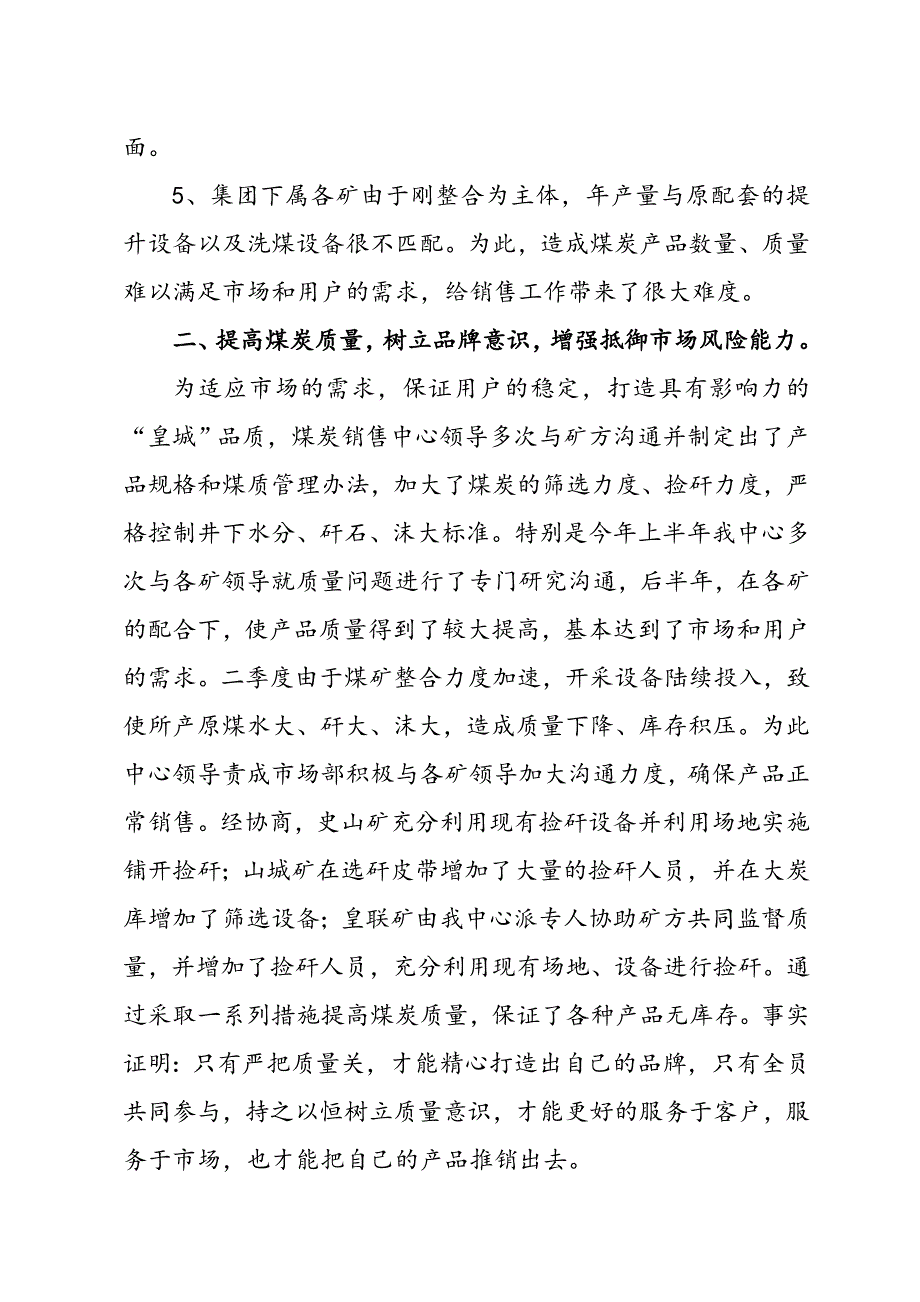 面。
5、集团下属各矿由于刚整合为主体，年产量与原配套的提
升设备以及洗煤设备很不匹配。为此，造成煤炭产品数量、质量
难以满足市场和用户的需求，给销售工作带来了很大难度。
二、提高煤炭质量，树立品牌意识，增强抵御市场风险能力。
为适应市场的需求，保证用户的稳定，打造具有影响力的
“皇城”品质，煤炭销售中心领导多次与矿方沟通并制定出了产
品规格和煤质管理办法，加大了煤炭的筛选力度、捡矸力度，严
格控制井下水分、矸石、沫大标准。特别是今年上半年我中心多
次与各矿领导就质量问题进行了专门研究沟通，后半年，在各矿
的配合下，使产品质量得到了较大提高，基本达到了市场和用户
的需求。二季度由于煤矿整合力度加速，开采设备陆续投入，致
使所产原煤水大、矸大、沫大，造成质量下降、库存积压。为此
中心领导责成市场部积极与各矿领导加大沟通力度，确保产品正
常销售。经协商，史山矿充分利用现有捡矸设备并利用场地实施
铺开捡矸；山城矿在选矸皮带增加了大量的捡矸人员，并在大炭
库增加了筛选设备；皇联矿由我中心派专人协助矿方共同监督质
量，并增加了捡矸人员，充分利用现有场地、设备进行捡矸。通
过采取一系列措施提高煤炭质量，保证了各种产品无库存。事实
证明：只有严把质量关，才能精心打造出自己的品牌，只有全员
共同参与，持之以恒树立质量意识，才能更好的服务于客户，服
务于市场，也才能把自己的产品推销出去。